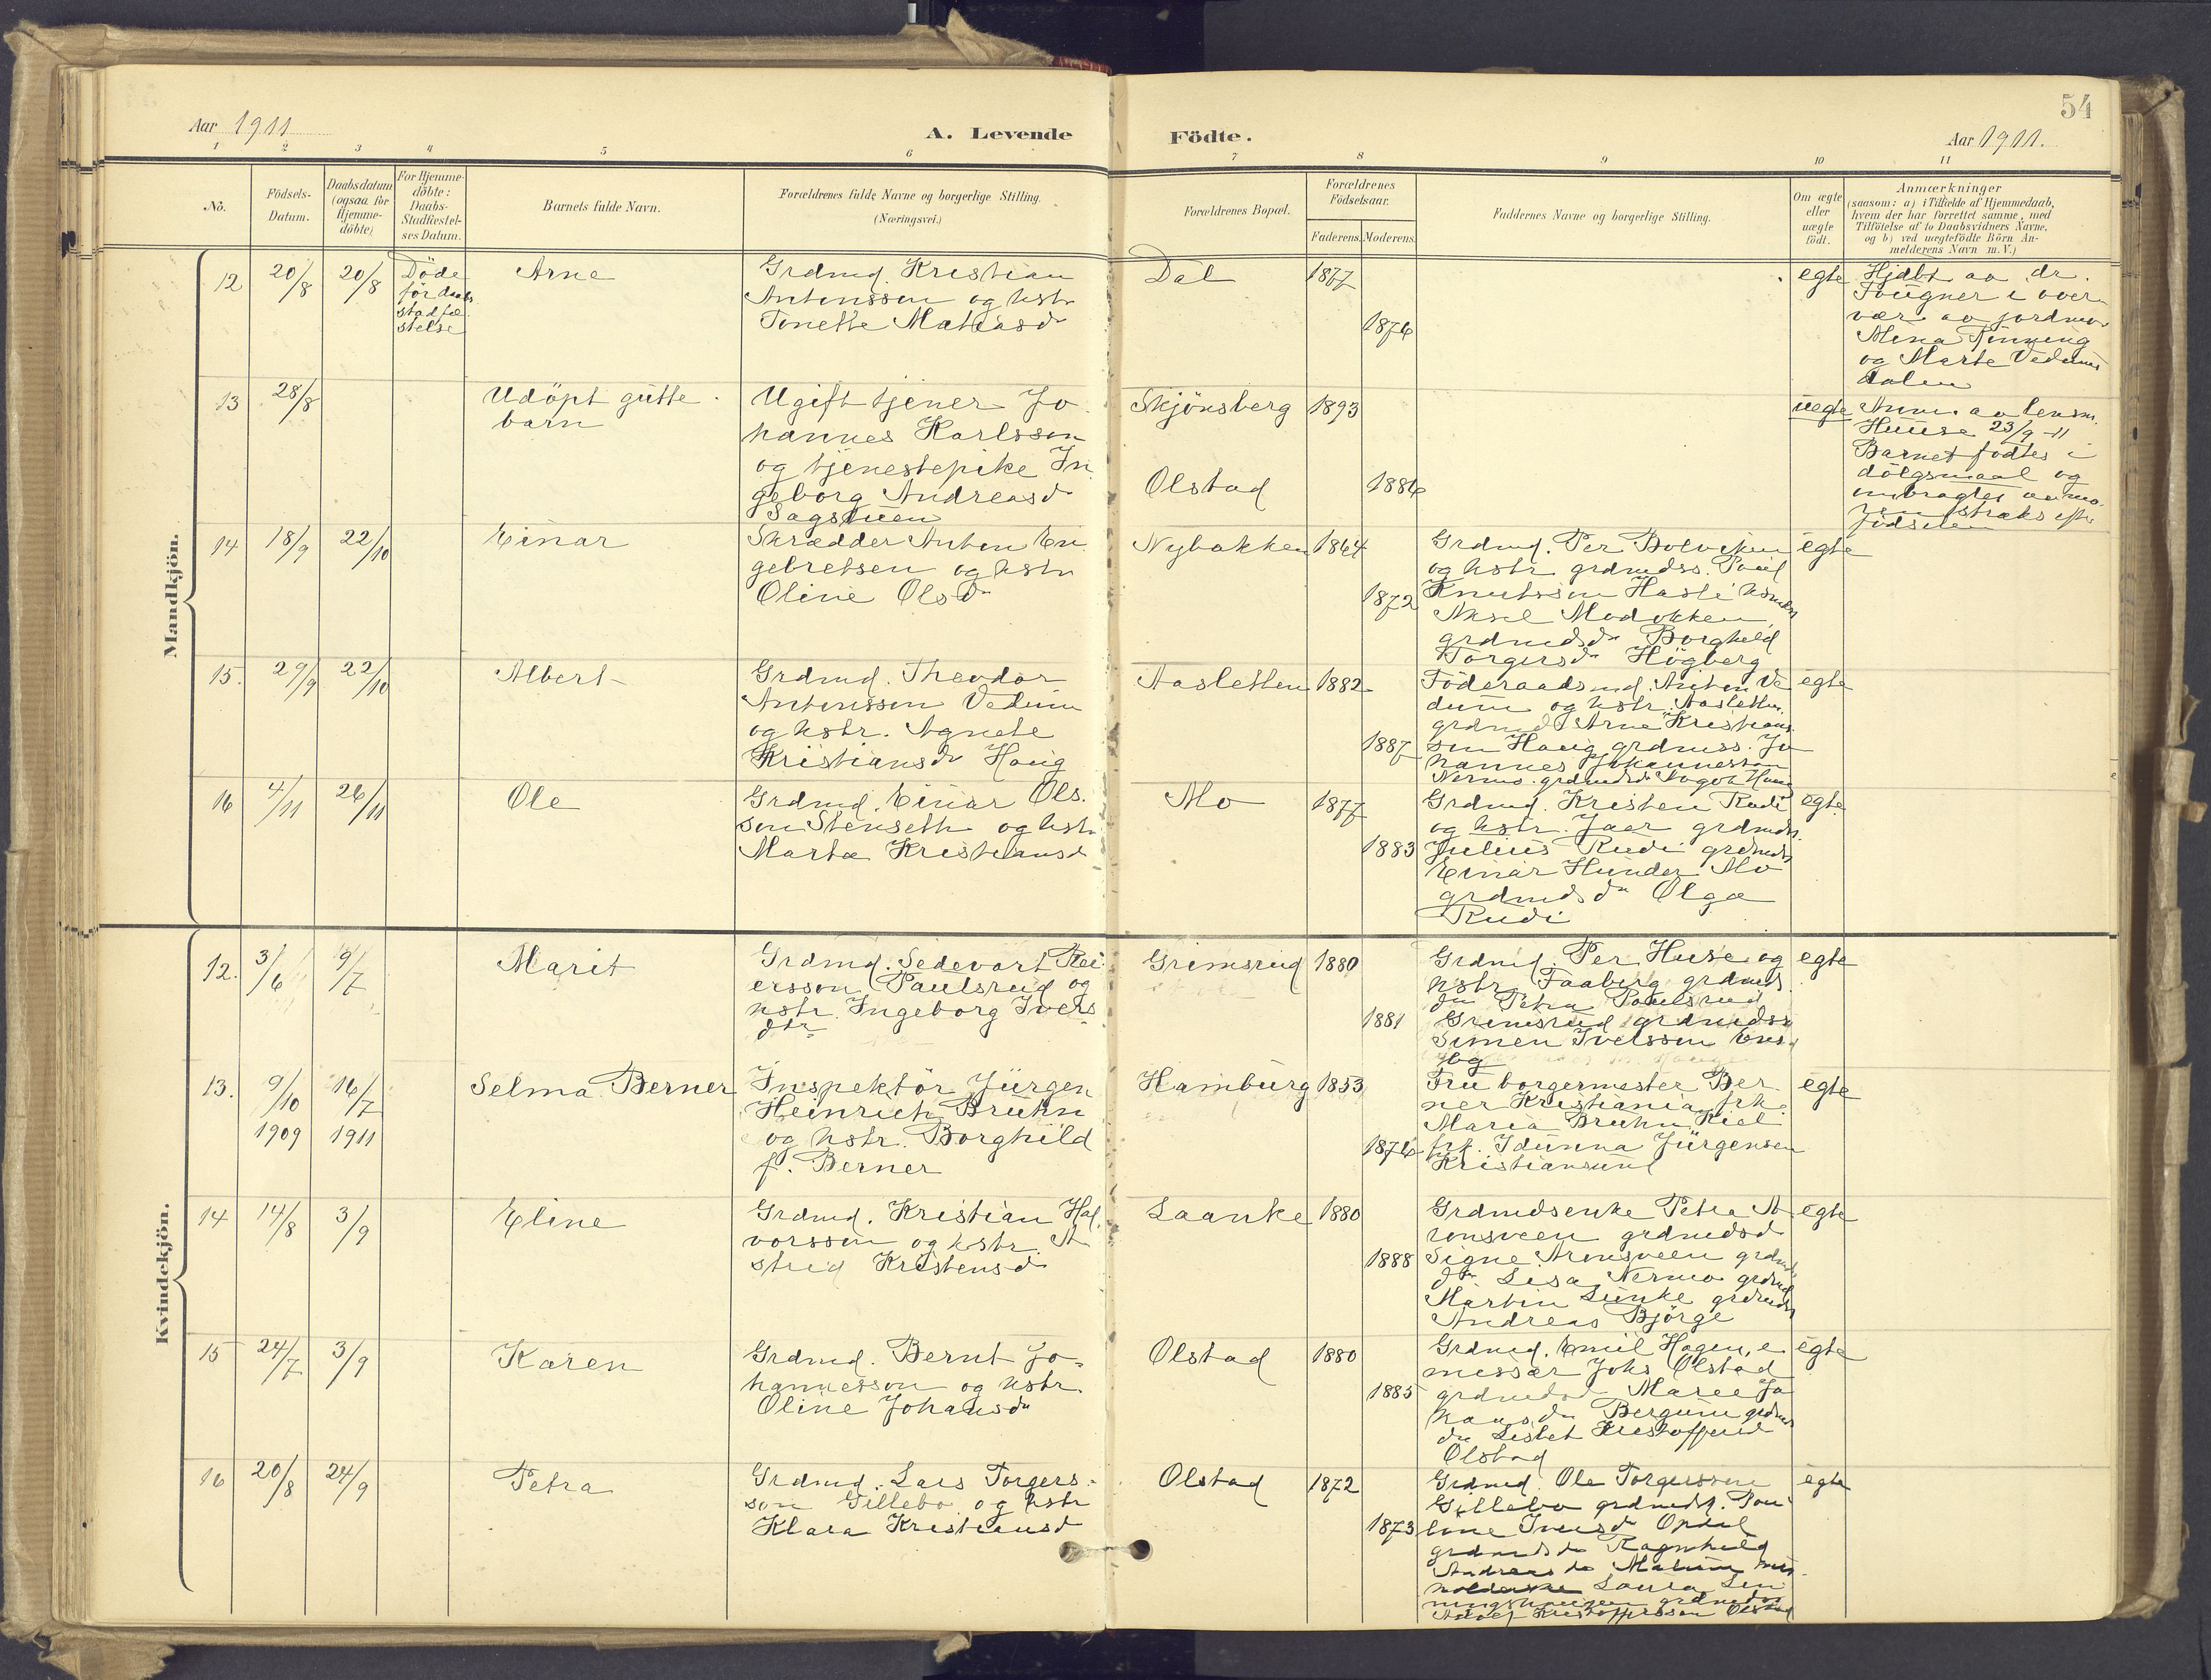 54
Aar 1911
A. Levende
Födte.
Aar 1911.
1 2 3 4 5 6 7 8 9 10 11
No.
Födsels-
Datum.
Daabsdatum
(ogsaa for
Hjemme-
döbte)
For Hjemme-
döbte:
Daabs-
Stadfæstel-
ses Datum.
Barnets fulde Navn.
Forældrenes fulde Navne og borgerlige Stilling.
(Næringsvei.)
Forældrenes Bopæl.
Forældrenes
Födselsaar.
Faderens. Moderens.
Faddernes Navne og borgerlige Stilling.
Om ægte
eller
uægte
födt.
Anmærkninger
(saasom: a) i Tilfælde af Hjemmedaab,
hvem der har forrettet samme, med
Tilföielse af to Daabsvidners Navne,
og b) ved uægtefödte Börn An-
melderens Navn m. V.)
Mandkjön.
12
20/8
20/8
Döde
för daabs
stadfæ
stelse
Arne
Grdmd. Kristian
Antonsson og hstr
Tonette Matiasdr
Dal
1877
1876
egte
Hjdbt av dr.
Tougner i over
vær av jordmor
Mina Rönning
og Marte Vedums
dalen
13
28/8
Udöpt gutte
barn
Ugift tjener Jo
hannes Karlsson
og tjenestepike In
geborg Andreasdr
Sagstuen
Skjönsberg
Olstad
1893
1886
uegte
Anm. av lensm.
Huuse 23/9 -11
Barnet födtes i
dölgsmaal og
ombragtes av mo
ren straks efter
födselen
14
18/9
22/10
Einar
Skrædder Anton En
gebretsen og hstr
Oline Olsdr
Nybakken
1864
1872
Grdmd. Per Bolviken
og hstr grdmdss. Poul
Knutsson Hasle
Aksel Modokken
grdmdsdr Borghild
Torgersdr Högberg
egte
15.
29/9
22/10
Albert
Grdmd. Theodor
Antonsson Vedum
og hstr. Agnete
Kristiansdr Haug
Aasletten
1882
1887
Föderaadsmd. Anton Ve
dum og hstr. Aasletten
grdmd Arne Kristians
son Haug grdmss. Jo
hannes Johannesson
Nermo grdmdsdr
egte
16
4/11
26/11
Ole
Grdmd. Einar Ols.
son Stenseth og hstr
Marta Kristiansdr
Mo
1877
1883
Grdmd. Kristen Rudi
og hstr. Jaer grdmds.
Julius Rudi grdmds
Einar Hunder Mo
grdmdsdr Olga
Rudi
egte
Kvindekjön.
12.
3/6
9/7
Marit
Grdmd. Sedevart Rei
ersson Paulsrud og
hstr. Ingeborg Ivers
dtr
Grimsrud
1880
1881
Grdmd. Per Huse og
hstr Faaberg grdmds
dr Petra Paulsrud
Grimsrud grdmdss
Simen Iverssen
egte
13.
9/10
1909
16/7
1911
Selma Berner
Inspektör Jürgen
Heinrich Bruhn
og hstr. Borghild
f. Berner
Hamburg
1853
1876
Fru borgermester Ber
ner Kristiania, frk.
Maria Bruhn Kiel
frk. Idunna Jürgensen
Kristiansund
egte
14
14/8
3/9
Eline
Grdmd. Kristian Hal
vorsson og hstr. A
strid Kristensdr
Laanke
1880
1888
Grdmdsenke Petra A
ronsveen grdmdsd
Signe Aronsveen grdmds
dtr. Lisa Nermo grdmds
Martin Lunke grdmds
Andreas Björge
egte
15
24/7
3/9
Karen
Grdmd. Bernt Jo-
hannesson og hstr.
Oline Johansdr
Olstad
1880
1885
Grdmd. Emil Hagen, e
missær Johs Olstad
grdmdsd Maree Jo
hansdr Bergum grdmds
dr Lisbet Kristofferd
Olstad
egte
16
20/8
24/9
Petra
Grdmd. Lars Torgers-
son Gillebo og hstr
Klara Kristiansdr
Olstad
1872
1873
Grdmd. Ole Torgersson
Gillebo grdmdsk. Pau
line Iversdr Opdal
grdmdsdr Ragnhild
Andreasdr Malum
Laura Lun
grdmds
Kristoffersson Olstad
egte